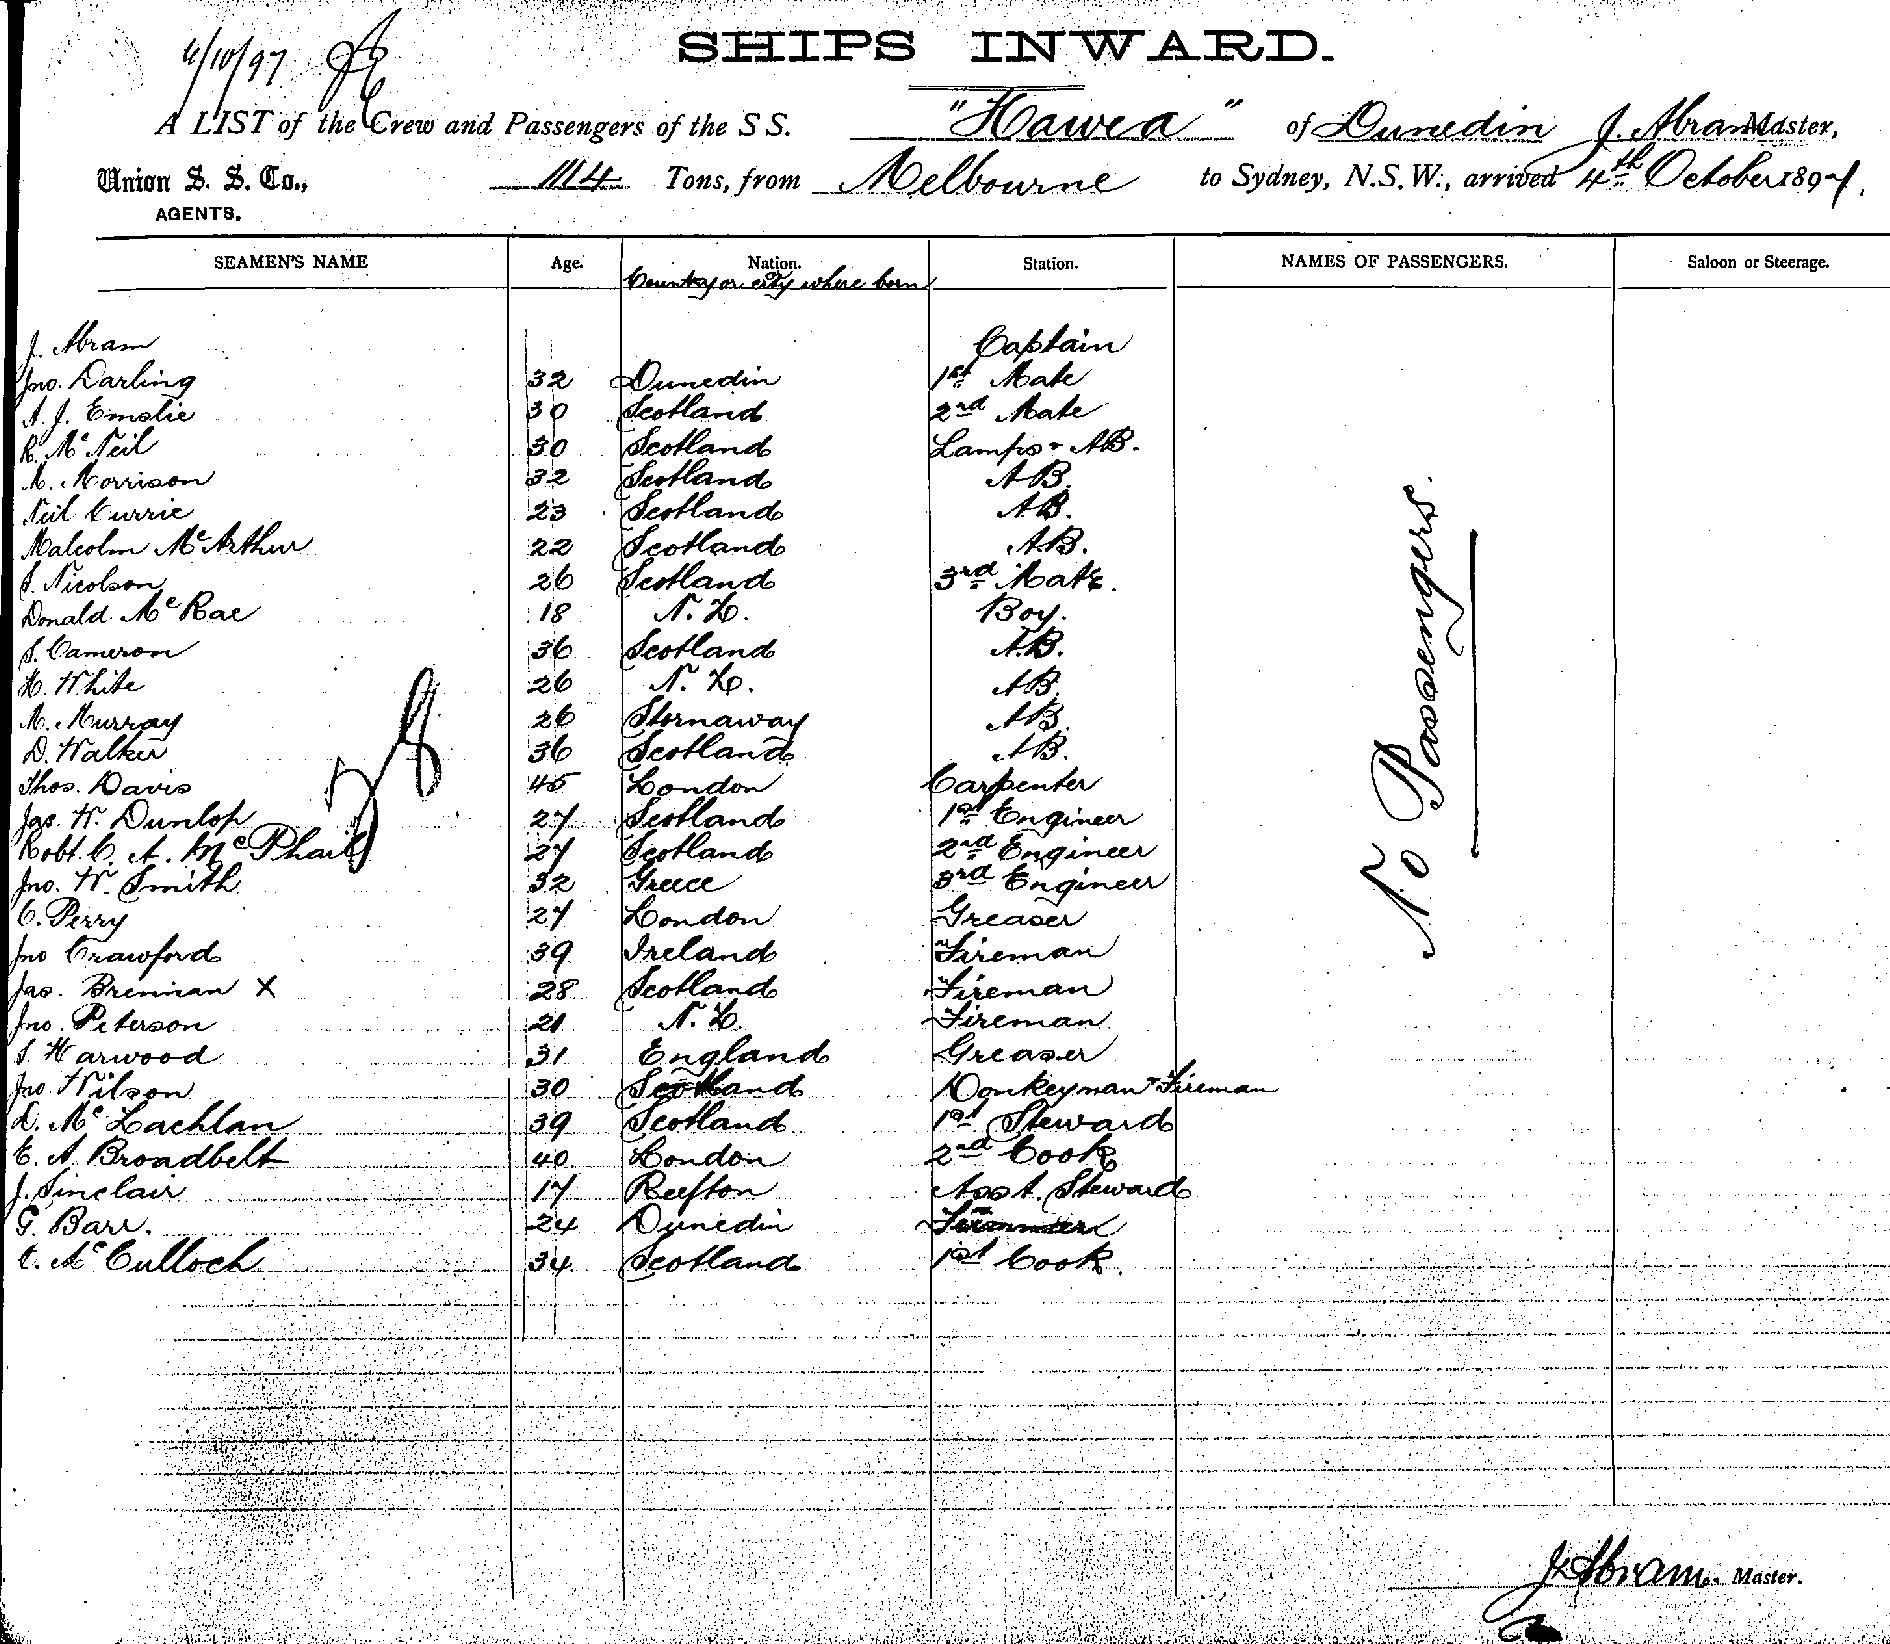 4/10/97
SHIPS INWARD.
A LIST of the Crew and Passengers of the S S. "Hawea" of Dunedin J. Abram Master,
Union S. S. Co., 1114 Tons, from Melbourne to Sydney, N.S.W., arrived 4th October 1897.
AGENTS.
SEAMEN'S NAME Age. Nation. Station. NAMES OF PASSENGERS. Saloon or Steerage.
Country or city where born
J. Abram Captain
Jno. Darling 32 Dunedin 1st Mate
A. J. Emslie 30 Scotland 2nd Mate
R. McNeil 30 Scotland Lamps & AB.
M. Morrison 32 Scotland AB.
Neil Currie 23 Scotland AB.
Malcolm McArthur 22 Scotland AB.
S. Nicolson 26 Scotland 3rd Mate.
Donald McRae 18 N.Z. Boy.
S. Cameron 36 Scotland A.B.
H. White 26 N.Z. AB.
M. Murray 26 Stornaway AB.
D. Walker 36 Scotland AB.
Thos. Davis 45 London Carpenter
Jas. W. Dunlop 27 Scotland 1st Engineer
Robt. C. A. McPhail 27 Scotland 2nd Engineer
Jno. W. Smith 32 Greece 3rd Engineer
C. Perry 27 London Greaser
Jno Crawford 39 Ireland Fireman
Jas. Brennan X 28 Scotland Fireman
Jno. Peterson 21 N.Z. Fireman
S. Harwood 31 England Greaser
Jno. Wilson 30 Scotland Donkeyman & Fireman
D. McLachlan 39 Scotland 1st Steward
E. A. Broadbelt 40 London 2nd Cook
J. Sinclair 17 Reefton Asst. Steward
G. Barr. 24 Dunedin
C. McCulloch 34 Scotland 1st Cook.
No Passengers.
J. Abram. Master.